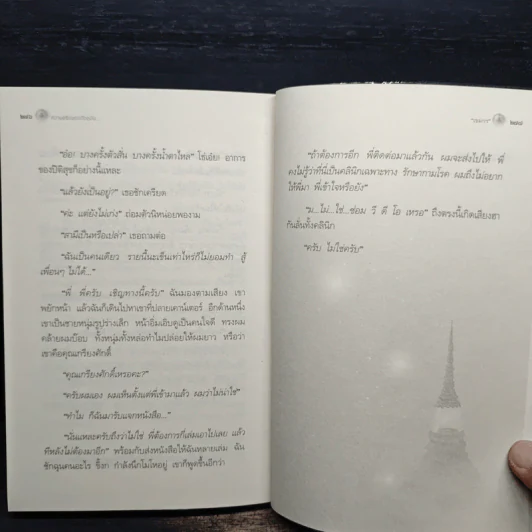 "อ๋อ! บางครั้งตัวสั่น บางครั้งน้ำตาไหล" โธ่เอ๋ย! อาการ
ของปิติสุขก็อย่างนี้แหละ
"แล้วยังเป็นอยู่?" เธอซักเครียด
"ค่ะ แต่ยังไม่เก่ง" ถ่อมตัวนิดหน่อยพองาม
"สามีเป็นหรือเปล่า" เธอถามต่อ
"ฉันเป็นคนเดียว รายนี้นะเข็นเท่าไหร่ก็ไม่ยอมทำ สู้
เพื่อนๆ ไม่ได้..."
"พี่ พี่ครับ เชิญทางนี้ครับ" ฉันมองตามเสียง เขา
พยักหน้า แล้วฉันก็เดินไปหาเขาที่ปลายเคาน์เตอร์ อีกด้านหนึ่ง
เขาเป็นชายหนุ่มรูปร่างเล็ก หน้าอิ่มเอิบดูเป็นคนใจดี ทรงผม
คล้ายผมบ๊อบ ทั้งหนุ่มทั้งหล่อทำไมปล่อยให้ผมยาว หรือว่า
เขาคือคุณเกรียงศักดิ์
"คุณเกรียงศักดิ์เหรอคะ?"
"ครับผมเอง ผมเห็นตั้งแต่พี่เข้ามาแล้ว ผมว่าไม่น่าใช่"
"ทำไม ก็ฉันมารับแจกหนังสือ..."
"นั่นแหละครับถึงว่าไม่ใช่ พี่ต้องการก็เล่มเอาไปเลย แล้ว
ทีหลังไม่ต้องมาอีก" พร้อมกับส่งหนังสือให้ฉันหลายเล่ม ฉัน
ชักฉุนคนอะไร ขี้งก กำลังนึกโมโหอยู่ เขาก็พูดขึ้นอีกว่า
"ถ้าต้องการอีก พี่ติดต่อมาแล้วกัน ผมจะส่งไปให้ พี่
คงไม่รู้ว่าที่นี่เป็นคลินิกเฉพาะทาง รักษากามโรค ผมถึงไม่อยาก
ให้พี่มา พี่เข้าใจหรือยัง"
"ม...ไม่...ใช่...ซ่อม วี ดี โอ เหรอ" ถึงตรงนี้เกิดเสียงฮา
กันลั่นทั้งคลินิก
"ครับ ไม่ใช่ครับ"